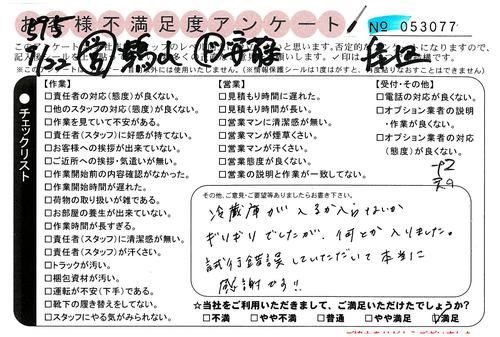 お客様不満足度アンケート
No 053077
【作業】
□責任者の対応(態度)が良くない。
□他のスタッフの対応(態度)が良くない。
□作業を見ていて不安がある。
□責任者(スタッフ)に好感が持てない。
□お客様への挨拶が出来ていない。
□ご近所への挨拶・気遣いが無い。
□作業開始前の内容確認がなかった。
□作業開始時間が遅れた。
□荷物の取り扱いが雑である。
□お部屋の養生が出来ていない。
□作業時間が長すぎる。
□責任者(スタッフ)に清潔感が無い。
□責任者(スタッフ)が汗くさい。
□トラックが汚い。
□梱包資材が汚い。
□運転が不安(下手)である。
□靴下の履き替えをしてない。
□スタッフにやる気がみられない。
チェックリスト
【営業】
□見積もり時間に遅れた。
□見積もり時間が長い。
□営業マンに清潔感が無い。
□営業マンが煙草くさい。
□営業マンが汗くさい。
□営業態度が良くない。
□営業の説明と作業が一致してない。
【受付・その他】
□電話の対応が良くない。
□オプション業者の説明
・作業が良くない。
□オプション業者の対応
(態度)が良くない。
その他、ご意見・ご要望等ありましたらお書き下さい。
冷蔵庫が入るか入らないか
ギリギリでしたが、何とか入りました。
試行錯誤していただいて本当に
感謝です!!
☆当社をご利用いただきまして、ご満足いただけたでしょうか?
□不満 □やや不満 □普通 □やや満足 ☑満足